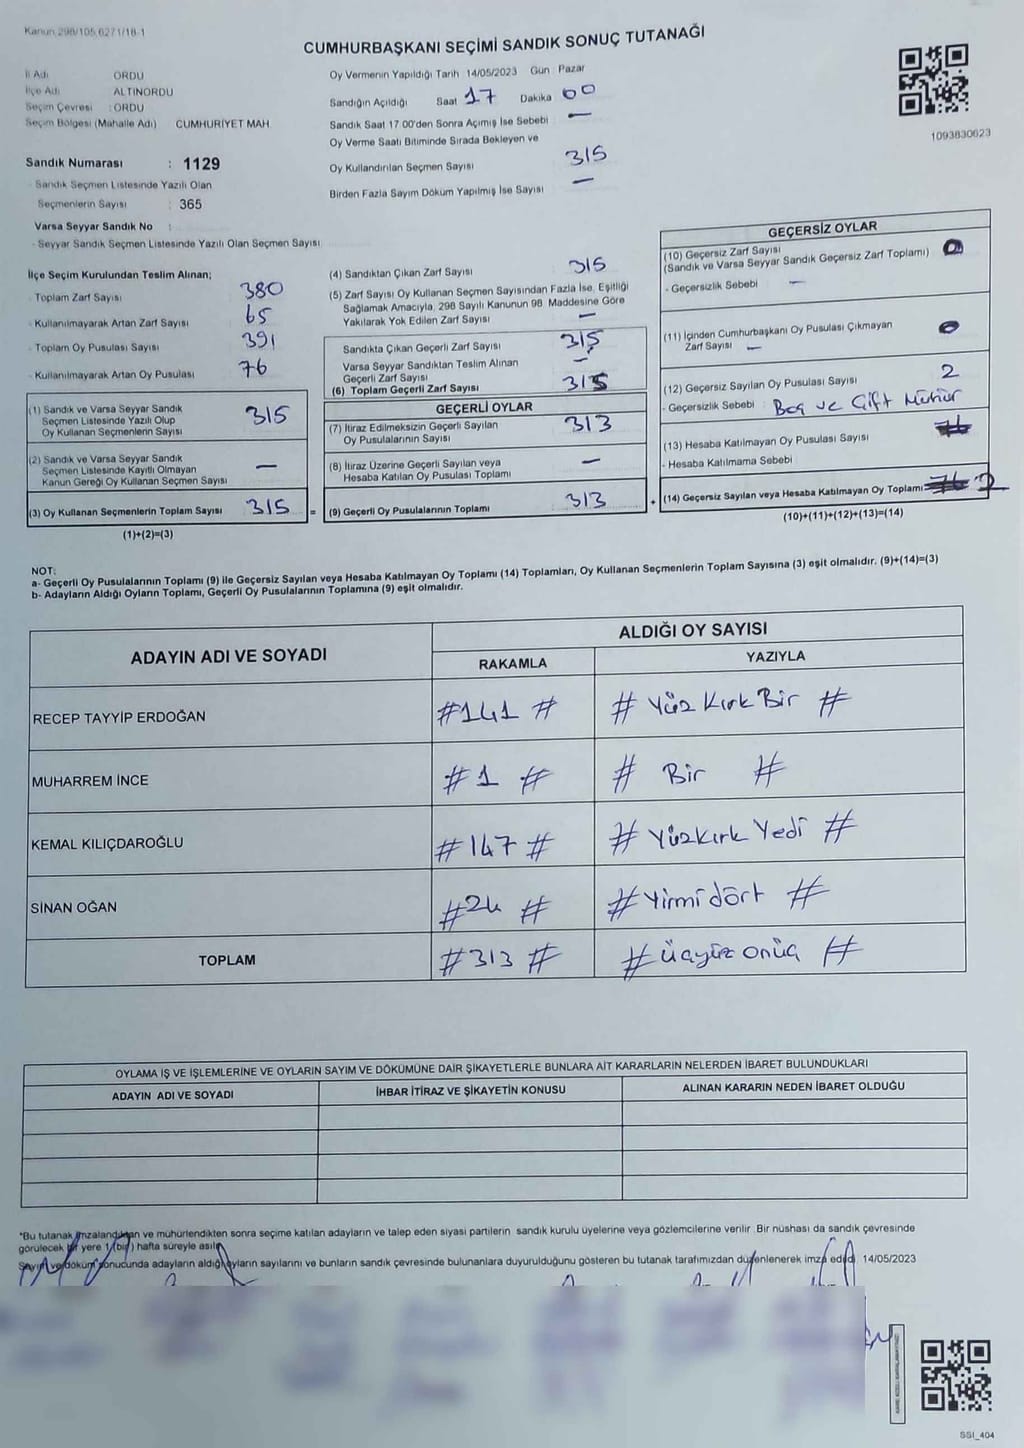 Kanun 298/105,6271/18-1
CUMHURBAŞKANI SEÇİMİ SANDIK SONUÇ TUTANAĞI
İl Adı ORDU
İlçe Adı ALTINORDU
Seçim Çevresi : ORDU
Seçim Bölgesi (Mahalle Adı) CUMHURİYET MAH.
Sandık Numarası : 1129
- Sandık Seçmen Listesinde Yazılı Olan
Seçmenlerin Sayısı : 365
Varsa Seyyar Sandık No :
- Seyyar Sandık Seçmen Listesinde Yazılı Olan Seçmen Sayısı
Oy Vermenin Yapıldığı Tarih 14/05/2023 Gün : Pazar
Sandığın Açıldığı Saat 17 Dakika 00
Sandık Saat 17:00'den Sonra Açımış İse Sebebi —
Oy Verme Saati Bitiminde Sırada Bekleyen ve
Oy Kullandırılan Seçmen Sayısı 315
Birden Fazla Sayım Döküm Yapılmış İse Sayısı —
1093830623
İlçe Seçim Kurulundan Teslim Alınan;
- Toplam Zarf Sayısı 380
- Kullanılmayarak Artan Zarf Sayısı 65
- Toplam Oy Pusulası Sayısı 391
- Kullanılmayarak Artan Oy Pusulası 76
(1) Sandık ve Varsa Seyyar Sandık
Seçmen Listesinde Yazılı Olup
Oy Kullanan Seçmenlerin Sayısı 315
(2) Sandık ve Varsa Seyyar Sandık
Seçmen Listesinde Kayıtlı Olmayan
Kanun Gereği Oy Kullanan Seçmen Sayısı —
(3) Oy Kullanan Seçmenlerin Toplam Sayısı 315 =
(1)+(2)=(3)
(4) Sandıktan Çıkan Zarf Sayısı 315
(5) Zarf Sayısı Oy Kullanan Seçmen Sayısından Fazla İse, Eşitliği
Sağlamak Amacıyla, 298 Sayılı Kanunun 98. Maddesine Göre
Yakılarak Yok Edilen Zarf Sayısı —
Sandıkta Çıkan Geçerli Zarf Sayısı 315
Varsa Seyyar Sandıktan Teslim Alınan
Geçerli Zarf Sayısı —
(6) Toplam Geçerli Zarf Sayısı 315
GEÇERLİ OYLAR
(7) İtiraz Edilmeksizin Geçerli Sayılan
Oy Pusulalarının Sayısı 313
(8) İtiraz Üzerine Geçerli Sayılan veya
Hesaba Katılan Oy Pusulası Toplamı —
(9) Geçerli Oy Pusulalarının Toplamı 313 +
GEÇERSİZ OYLAR
(10) Geçersiz Zarf Sayısı 0
(Sandık ve Varsa Seyyar Sandık Geçersiz Zarf Toplamı)
- Geçersizlik Sebebi —
(11) İçinden Cumhurbaşkanı Oy Pusulası Çıkmayan 0
Zarf Sayısı —
(12) Geçersiz Sayılan Oy Pusulası Sayısı 2
- Geçersizlik Sebebi : Boş ve Çift Mühür
(13) Hesaba Katılmayan Oy Pusulası Sayısı
- Hesaba Katılmama Sebebi
(14) Geçersiz Sayılan veya Hesaba Katılmayan Oy Toplamı 2
(10)+(11)+(12)+(13)=(14)
NOT:
a- Geçerli Oy Pusulalarının Toplamı (9) ile Geçersiz Sayılan veya Hesaba Katılmayan Oy Toplamı (14) Toplamları, Oy Kullanan Seçmenlerin Toplam Sayısına (3) eşit olmalıdır. (9)+(14)=(3)
b- Adayların Aldığı Oyların Toplamı, Geçerli Oy Pusulalarının Toplamına (9) eşit olmalıdır.
ADAYIN ADI VE SOYADI ALDIĞI OY SAYISI
RAKAMLA YAZIYLA
RECEP TAYYİP ERDOĞAN #141 # # Yüz Kırk Bir #
MUHARREM İNCE # 1 # # Bir #
KEMAL KILIÇDAROĞLU # 147 # # Yüzkırk Yedi #
SİNAN OĞAN #24 # # Yirmi dört #
TOPLAM #313 # # üçyüz onüç #
OYLAMA İŞ VE İŞLEMLERİNE VE OYLARIN SAYIM VE DÖKÜMÜNE DAİR ŞİKAYETLERLE BUNLARA AİT KARARLARIN NELERDEN İBARET BULUNDUKLARI
ADAYIN ADI VE SOYADI İHBAR İTİRAZ VE ŞİKAYETİN KONUSU ALINAN KARARIN NEDEN İBARET OLDUĞU
*Bu tutanak imzalandıktan ve mühürlendikten sonra seçime katılan adayların ve talep eden siyasi partilerin sandık kurulu üyelerine veya gözlemcilerine verilir. Bir nüshası da sandık çevresinde
görülecek bir yere 1 (bir) hafta süreyle asılır.
Sayım ve döküm sonucunda adayların aldığı oyların sayılarını ve bunların sandık çevresinde bulunanlara duyurulduğunu gösteren bu tutanak tarafımızdan düzenlenerek imza edildi. 14/05/2023
SSI_404